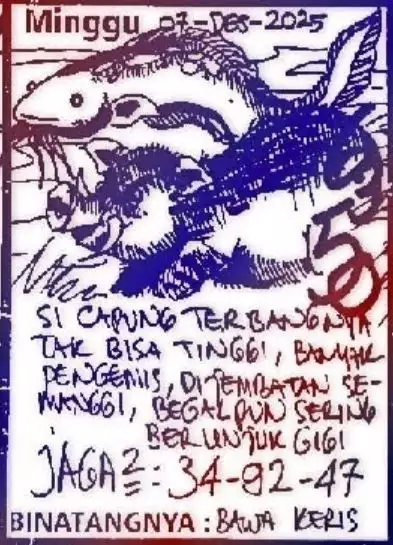 Minggu 07-DES-2025
SI CAPUNG TERBANGNYA
TAK BISA TINGGI, BANYAK
PENGEMIS, DIJEMBATAN SE-
MANGGI, BEGAL PUN SERING
BERUNJUK GIGI
JAGA2 =: 34-92-47
BINATANGNYA : BAWA KERIS